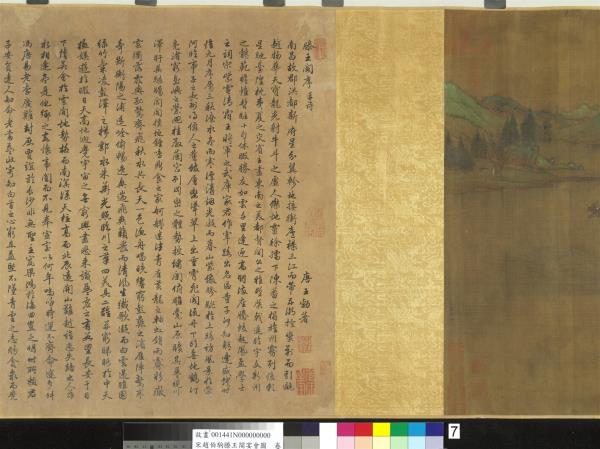 滕王閣序并詩
唐王勃著
南昌故郡洪都新府星分翼軫地接衡廬襟三江而帶五湖控蠻荊而引甌
越物華天寶龍光射牛斗之墟人傑地靈徐孺下陳蕃之榻雄州霧列俊彩
星馳臺隍枕夷夏之交賓主盡東南之美都督閻公之雅望棨戟遙臨宇文新州
之懿範襜帷暫駐十旬休暇勝友如雲千里逢迎高朋滿座騰蛟起鳳孟學士
之詞宗紫電清霜王將軍之武庫家君作宰路出名區童子何知躬逢盛餞時
維九月序屬三秋潦水盡而寒潭清烟光凝而暮山紫儼驂騑於上路訪風景於崇
阿臨帝子之長洲得仙人之舊館層巒聳翠上出重霄飛閣流丹下臨無地鶴汀
鳧渚窮島嶼之縈迴桂殿蘭宮列岡巒之體勢披繡闥俯雕甍山原曠其盈視川
澤盱其駭矚閭閻撲地鐘鳴鼎食之家舸艦迷津青雀黃龍之軸虹銷雨霽彩徹
雲衢落霞與孤鶩齊飛秋水共長天一色漁舟唱晚響窮彭蠡之濱雁陣驚寒
聲斷衡陽之浦遙吟俯暢逸興遄飛爽籟發而清風生纖歌凝而白雲遏睢園
綠竹氣凌彭澤之樽鄴水朱華光照臨川之筆四美具二難并窮睇眄於中天
極娛遊於暇日天高地迥覺宇宙之無窮興盡悲來識盈虛之有數望長安於日
下指吳會於雲間地勢極而南溟深天柱高而北辰遠關山難越誰悲失路之人萍
水相逢盡是他鄉之客懷帝閽而不見奉宣室以何年嗚呼時運不齊命途多舛
馮唐易老李廣難封屈賈誼於長沙非無聖主竄梁鴻於海曲豈乏明時所賴君
子安貧達人知命老當益壯寧知白首之心窮且益堅不墜青雲之志酌貪泉而覺
故畫 001441N000000000
宋趙伯駒滕王閣宴會圖 卷
7